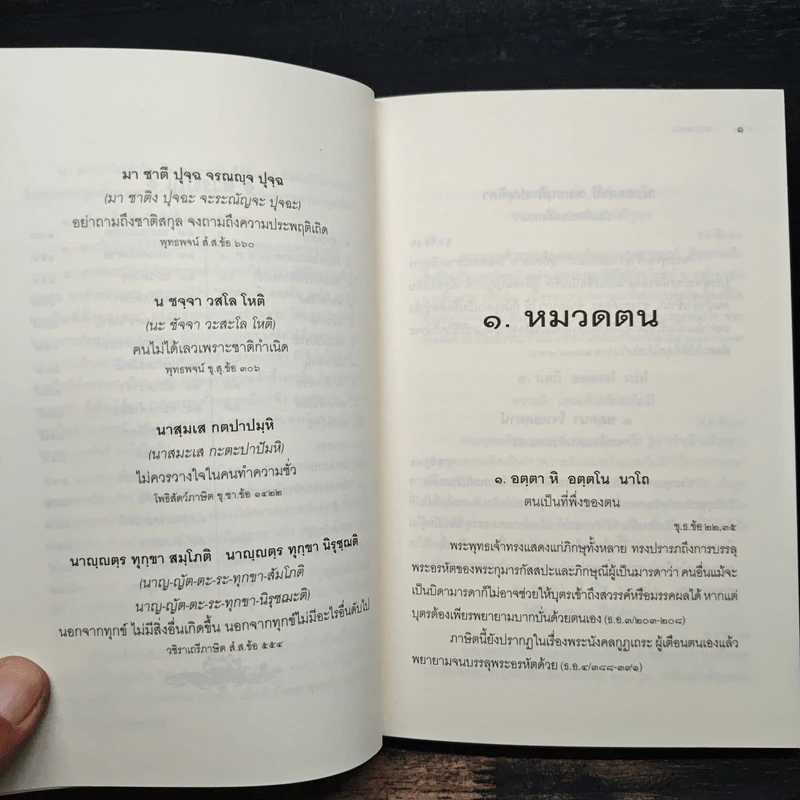 มา ชาตึ ปุจฺฉ จรณญฺจ ปุจฺฉ
(มา ชาติง ปุจฉะ จะระณัญจะ ปุจฉะ)
อย่าถามถึงชาติสกุล จงถามถึงความประพฤติเถิด
พุทธพจน์ สํ.ส.ข้อ ๖๖๐
น ชจฺจา วสโล โหติ
(นะ ชัจจา วะสะโล โหติ)
คนไม่ได้เลวเพราะชาติกำเนิด
พุทธพจน์ ขุ.สุ.ข้อ ๓๐๖
นาสฺมเส กตปาปมฺหิ
(นาสมะเส กะตะปาปัมหิ)
ไม่ควรวางใจในคนทำความชั่ว
โพธิสัตว์ภาษิต ขุ.ชา.ข้อ ๑๔๒๒
นาญฺญตฺร ทุกฺขา สมฺโภติ นาญฺญตฺร ทุกฺขา นิรุชฺฌติ
(นาญ-ญัต-ตะ-ระ-ทุกขา-สัมโภติ
นาญ-ญัต-ตะ-ระ-ทุกขา-นิรุชฌะติ)
นอกจากทุกข์ ไม่มีสิ่งอื่นเกิดขึ้น นอกจากทุกข์ไม่มีอะไรอื่นดับไป
วชิราเถรีภาษิต สํ.ส.ข้อ ๕๕๔
๑
๑. หมวดตน
๑. อตฺตา หิ อตฺตโน นาโถ
ตนเป็นที่พึ่งของตน
ขุ.ธ.ข้อ ๒๒,๓๕
พระพุทธเจ้าทรงแสดงแก่ภิกษุทั้งหลาย ทรงปรารภถึงการบรรลุ
พระอรหัตของพระกุมารกัสสปะและภิกษุณีผู้เป็นมารดาว่า คนอื่นแม้จะ
เป็นบิดามารดาก็ไม่อาจช่วยให้บุตรเข้าถึงสวรรค์หรือมรรคผลได้ หากแต่
บุตรต้องเพียรพยายามบากบั่นด้วยตนเอง (ธ.อ.๓/๒๐๓-๒๐๘)
ภาษิตนี้ยังปรากฏในเรื่องพระนังคลกูฏเถระ ผู้เตือนตนเองแล้ว
พยายามจนบรรลุพระอรหัตด้วย (ธ.อ.๔/๓๘๘-๓๙๑)